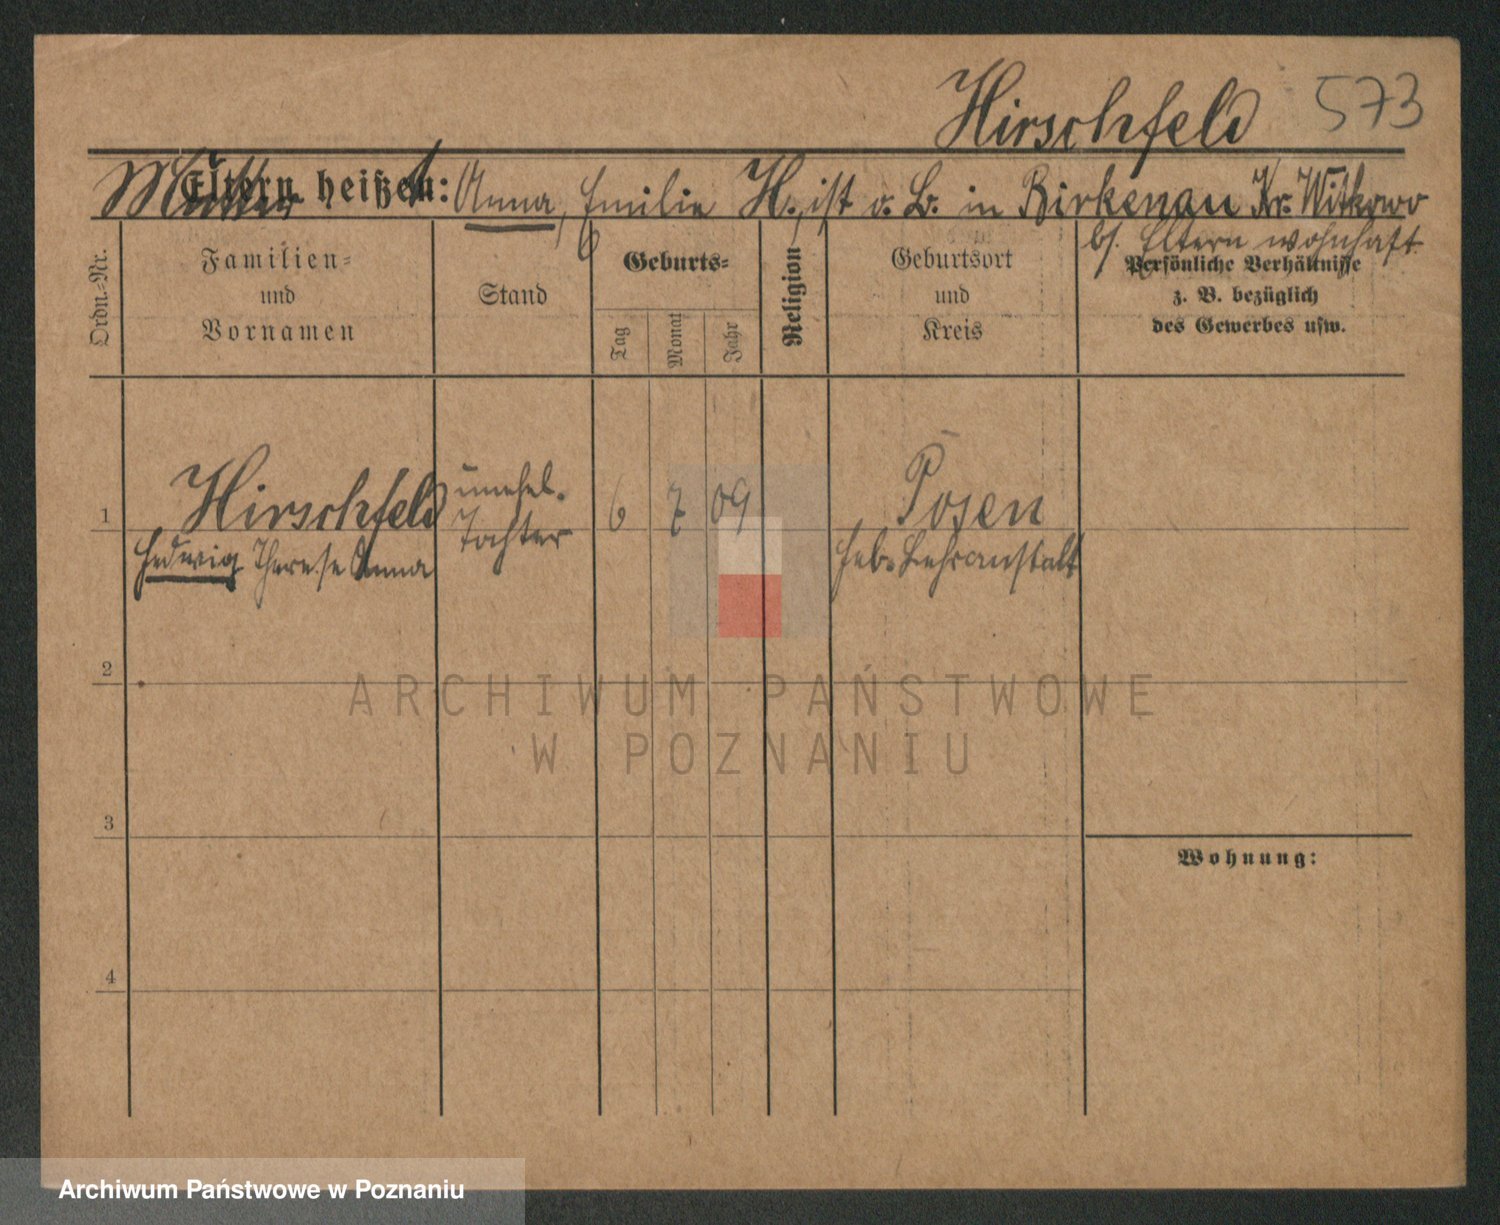 Hirschfeld 573
Mutter
Eltern heißen: Anna, Emilie H., ist o. B. in Birkenau Kr. Witkowo
bs. Eltern wohnhaft
Ordn.-Nr.
Familien-
und
Vornamen
Stand
Geburts-
Tag
Monat
Jahr
Religion
Geburtsort
und
Kreis
Persönliche Verhältnisse
z. B. bezüglich
des Gewerbes usw.
1 Hirschfeld unehel. 6 7 09 Posen
Hedwig Therese Anna Tochter Heb. Lehranstalt
2
ARCHIWUM PAŃSTWOWE
W POZNANIU
3
Wohnung:
4
Archiwum Państwowe w Poznaniu